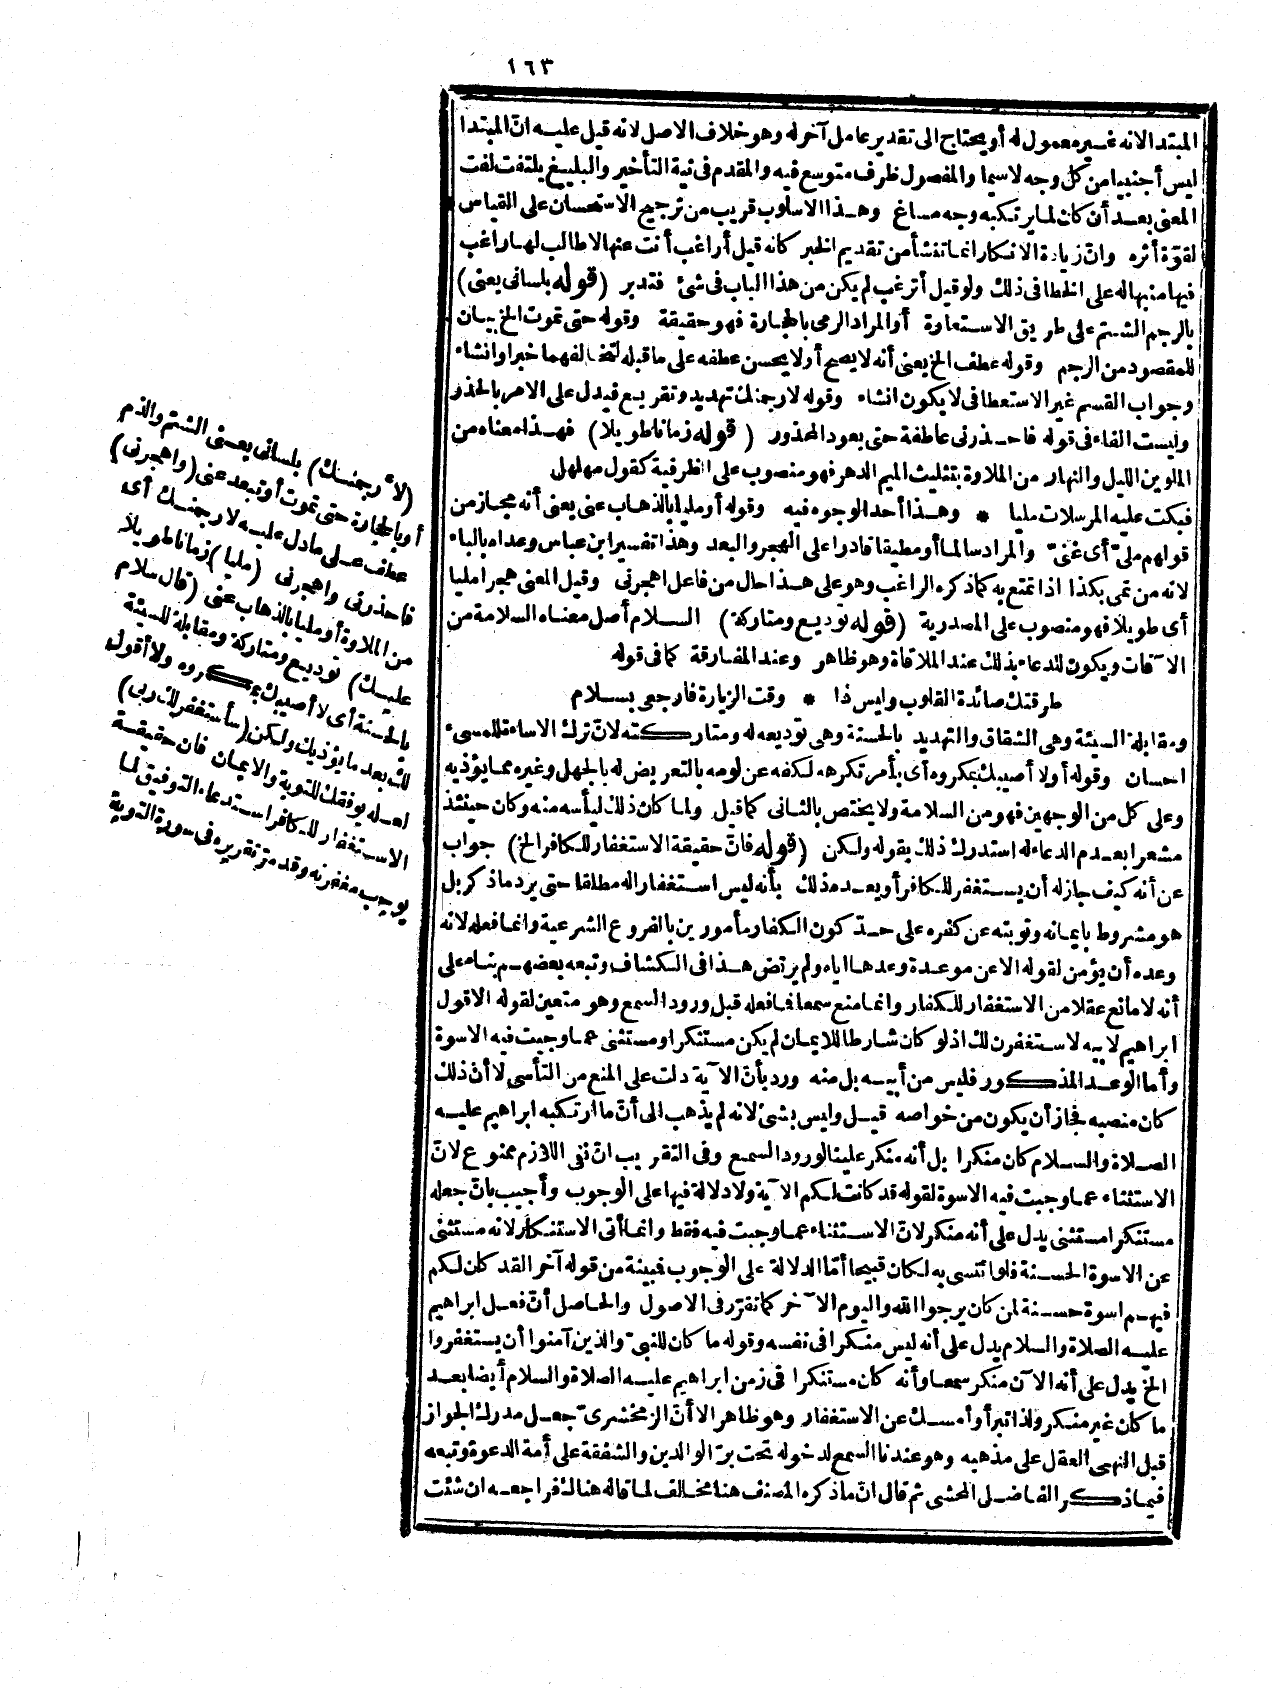 ١٦٣
المبتدا لانه غير معمول له أو يحتاج الى تقدير عامل آخر له وهو خلاف الاصل لانه قيل عليه انّ المبتدا
ليس أجنبيا من كل وجه لاسيما والمفصول ظرف متوسع فيه والمقدم فى نية التأخير والبليغ يلتفت لفت
المعنى بعد أن كان لما يرتكبه وجه مساغ وهذا الاسلوب قريب من ترجيح الاستحسان على القياس
لقوّة أثره وانّ زيادة الانكار انما تنشأ من تقديم الخبر كانه قيل أراغب أنت عنها لا طالب لها راغب
فيها منبها له على الخطا فى ذلك ولو قيل أترغب لم يكن من هذا الباب فى شئ فتدبر (قوله بلسانى يعنى)
بالرجم الشتم على طريق الاستعارة أو المراد الرمى بالحجارة فهو حقيقة وقوله حتى تموت الخ بيان
للمقصود من الرجم وقوله عطف الخ يعنى أنه لا يصح أو لا يحسن عطفه على ما قبله لتخالفهما خبرا وانشاء
وجواب القسم غير الاستعطافى لا يكون انشاء وقوله لارجمنك تهديد وتقريع فيدل على الامر بالحذر
وليست الفاء فى قوله فاحذرنى عاطفة حتى يعود المحذور (قوله زمانا طويلا) فهذا معناه من
الملوين الليل والنهار من الملاوة بتثليث الميم الدهر فهو منصوب على الظرفية كقول مهلهل
فبكت عليه المرسلات مليا * وهذا أحد الوجوه فيه وقوله أو مليا بالذهاب عنى يعنى أنه مجاز من
قولهم ملىّ أى غنىّ والمراد سالما أو مطيقا قادرا على الهجر والبعد وهذا تفسير ابن عباس وعداه بالباء
لانه من تملى بكذا اذا تمتع به كما ذكره الراغب وهو على هذا حال من فاعل اهجرنى وقيل المعنى هجرا مليا
أى طويلا فهو منصوب على المصدرية (قوله توديع ومتاركة) السلام أصل معناه السلامة من
الآفات ويكون للدعاء بذلك عند الملاقاة وهو ظاهر وعند المفارقة كما فى قوله
طرقتك صائدة القلوب وليس ذا * وقت الزيارة فارجعى بسلام
ومقابلة السيئة وهى الشقاق والتهديد بالحسنة وهى توديعه له ومتاركته لانّ ترك الاساءة للمسىء
احسان وقوله أو لا أصيبك بمكروه أى بأمر تكرهه لكفه عن لومه بالتعريض له بالجهل وغيره مما يؤذيه
وعلى كل من الوجهين فهو من السلامة ولا يختص بالثانى كما قيل ولما كان ذلك ليأسه منه وكان حينئذ
مشعرا بعدم الدعاء له استدرك ذلك بقوله ولكن (قوله فانّ حقيقة الاستغفار للكافر الخ) جواب
عن أنه كيف جاز له أن يستغفر للكافر أو يعده ذلك بأنه ليس استغفارا له مطلقا حتى يرد ما ذكر بل
هو مشروط بايمانه وتوبته عن كفره على حدّ كون الكفار مأمورين بالفروع الشرعية وانما فعله لانه
وعده أن يؤمن لقوله الا عن موعدة وعدها اياه ولم يرتض هذا فى الكشاف وتبعه بعضهم بناء على
أنه لا مانع عقلا من الاستغفار للكفار وانما منع سمعا فما فعله قبل ورود السمع وهو متعين لقوله الا قول
ابراهيم لابيه لاستغفرن لك اذ لو كان شارطا للايمان لم يكن مستنكرا ومستثنى عما وجبت فيه الاسوة
وأما الوعد المذكور فليس من أبيه بل منه ورد بأن الآية دلت على المنع من التأسى لا أنّ ذلك
كان منصبه فجاز أن يكون من خواصه قيل وليس بشئ لانه لم يذهب الى أنّ ما ارتكبه ابراهيم عليه
الصلاة والسلام كان منكرا بل أنه منكر علينا لورود السمع وفى التقريب انّ نفى اللازم ممنوع لانّ
الاستثناء عما وجبت فيه الاسوة لقوله قد كانت لكم الآية ولا دلالة فيها على الوجوب وأجيب بانّ جعله
مستنكرا مستثنى يدل على أنه منكر لانّ الاستثناء عما وجبت فيه فقط وانما أتى الاستنكار لانه مستثنى
عن الاسوة الحسنة فلو ائتسى به لكان قبيحا أمّا الدلالة على الوجوب فبينة من قوله آخر القد كان لكم
فيهم اسوة حسنة لمن كان يرجوا الله واليوم الآخر كما تقرّر فى الاصول والحاصل أنّ فعل ابراهيم
عليه الصلاة والسلام يدل على أنه ليس منكرا فى نفسه وقوله ما كان للنبىّ والذين آمنوا أن يستغفروا
الخ يدل على أنه الآن منكر سمعا وأنه كان مستنكرا فى زمن ابراهيم عليه الصلاة والسلام أيضا بعد
ما كان غير منكر ولذا تبرأ وأمسك عن الاستغفار وهو ظاهر الا أنّ الزمخشرىّ جعل مدرك الجواز
قبل النهى العقل على مذهبه وهو عندنا السمع لدخوله تحت برّ الوالدين والشفقة على أمة الدعوة وتبعه
فيما ذكر الفاضل المحشى ثم قال انّ ما ذكره المصنف هنا مخالف لما قاله هنالك فراجعه ان شئت
(لأرجمنك) بلسانى يعنى الشتم والذم
أو بالحجارة حتى تموت أو تبعد عنى (واهجرنى)
عطف على ما دل عليه لارجمنك أى
فاحذرنى واهجرنى (مليا) زمانا طويلا
من الملاوة أو مليا بالذهاب عنى (قال سلام
عليك) توديع ومتاركة ومقابلة للسيئة
بالحسنة أى لا أصيبك بمكروه ولا أقول
لك بعد ما يؤذيك ولكن (سأستغفر لك ربى)
لعله يوفقك للتوبة والايمان فان حقيقة
الاستغفار للكافر استدعاء التوفيق لما
يوجب مغفرته وقد مرّ تقريره فى سورة التوبة